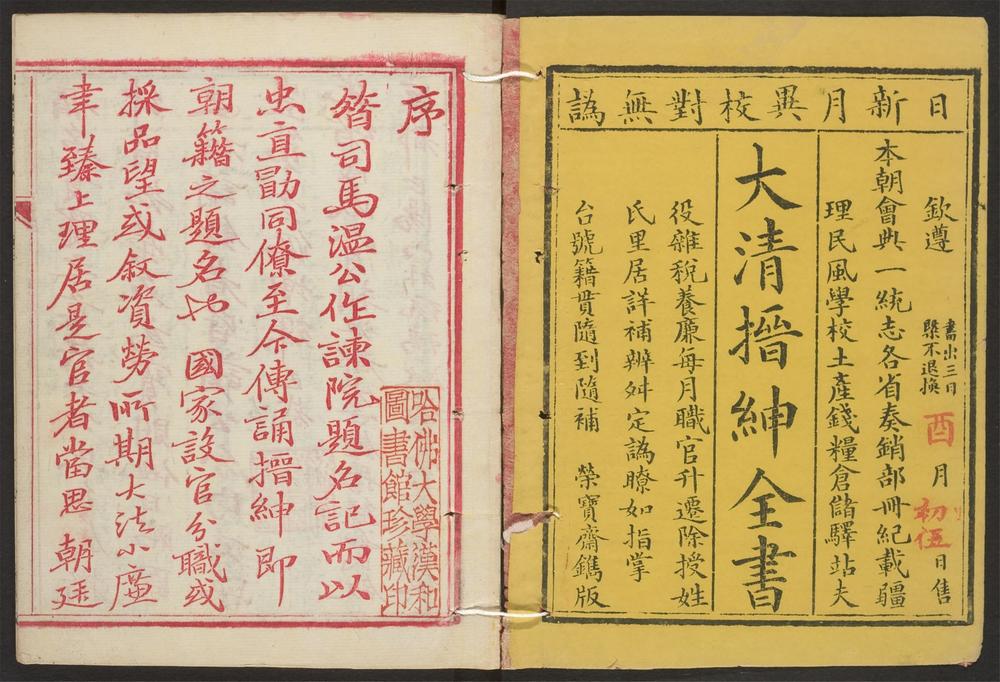 日新月異校對無譌
欽遵
書出三日
槩不退換
酉月初伍日售
本朝會典一統志各省奏銷部冊紀載疆
理民風學校土產錢糧倉儲驛站夫
大清搢紳全書
役雜稅養廉每月職官升遷除授姓
氏里居詳補辨舛定譌瞭如指掌
台號籍貫隨到隨補 榮寶齋鐫版
序
昔司馬溫公作諫院題名記而以
忠直勖同僚至今傳誦搢紳即
朝籍之題名也 國家設官分職或
採品望或敘資勞所期大法小廉
聿臻上理居是官者當思 朝廷
哈佛大學漢和
圖書館珍藏印